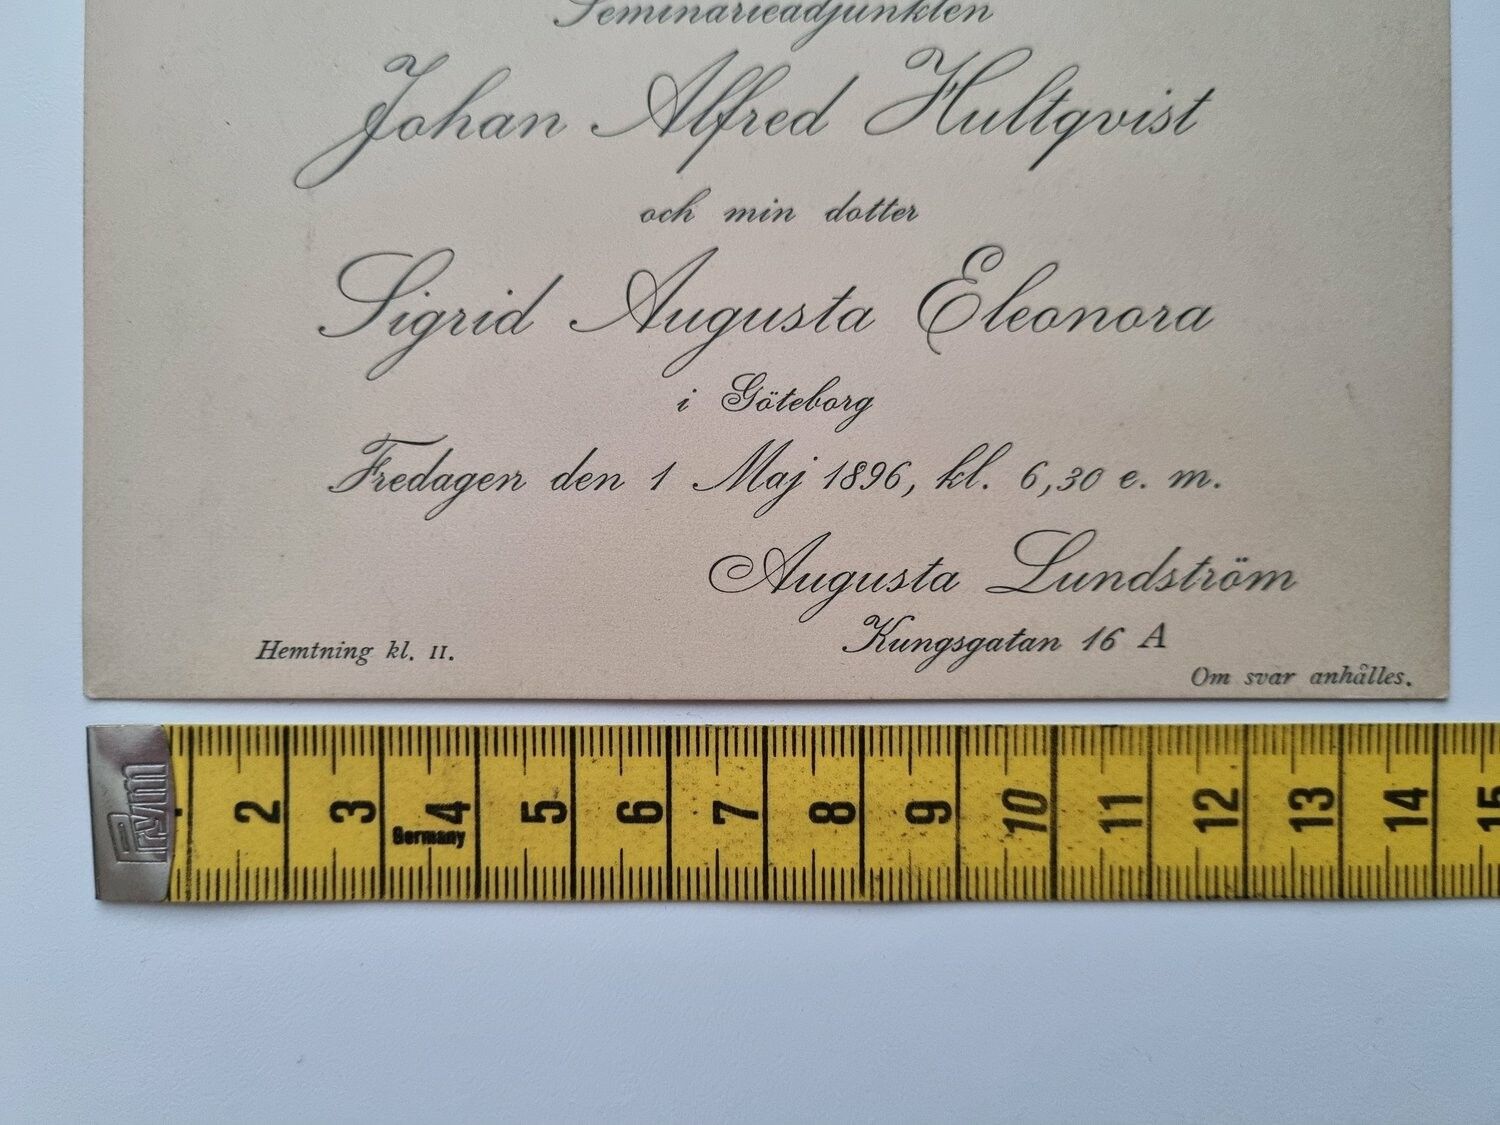 Seminarieadjunkten
Johan Alfred Hultqvist
och min dotter
Sigrid Augusta Eleonora
i Göteborg
Fredagen den 1 Maj 1896, kl. 6,30 e. m.
Augusta Lundström
Kungsgatan 16 A
Hemtning kl. 11.
Om svar anhålles.
Prym 1 2 3 4 5 6 7 8 9 10 11 12 13 14 15
Germany